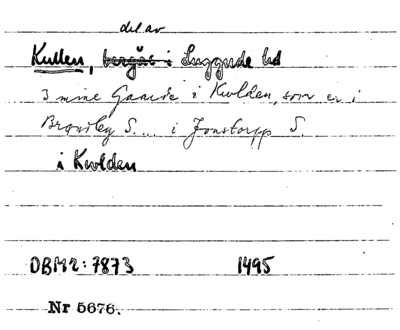 del av
Kullen, bergås i Luggude hd
3 mine Gaarde i Kwlden, som er i
Brandby S... i Jonstorpp S.
i Kwlden
DBM2:7873 1495
Nr 5676.